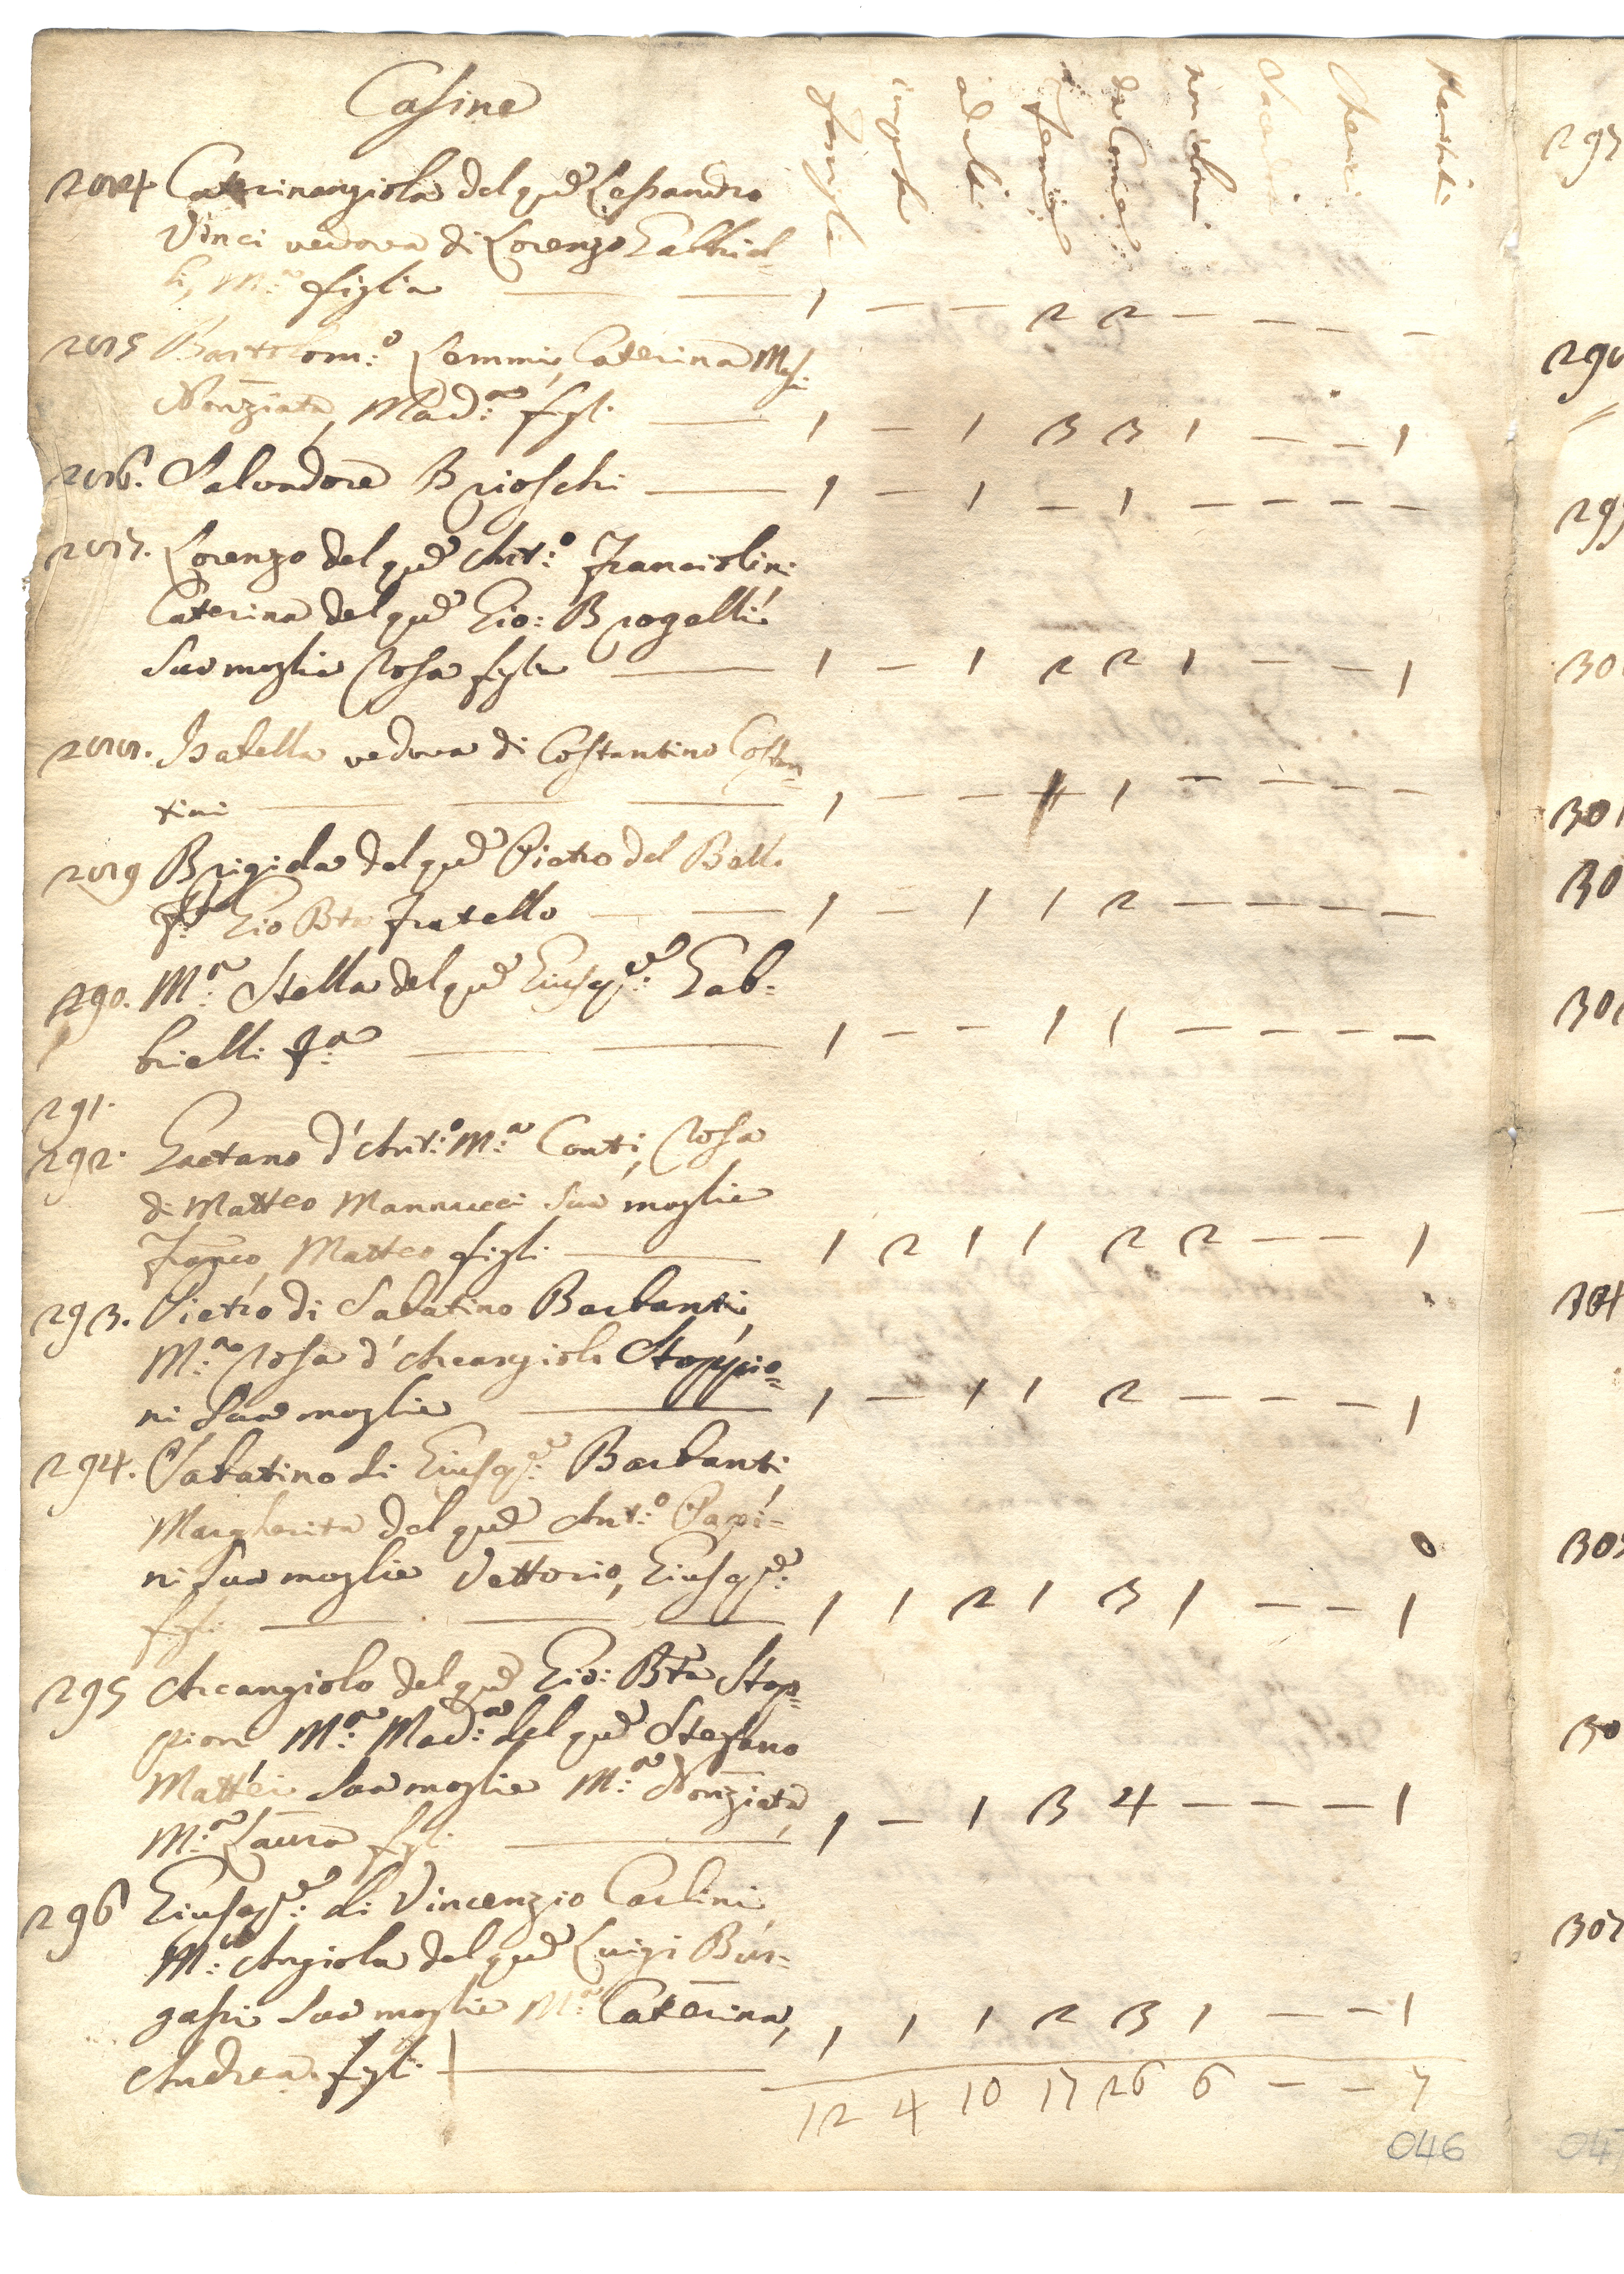 Casine
famiglie
impub.
adulti
femine
da Com.e
non da Com.
Sacerdoti
Cherici
Maritati
284. Caterinangiola del qu.m Lessandro
Vinci vedova di Lorenzo Gabbriel-
li, M.a figlia 1 — — 2 2 — — — —
285 Bartolom:o Lemmi, Caterina Mog.
Nonziata, Mad:a figl. 1 — 1 3 3 1 — — 1
286. Salvadore Brioschi 1 — 1 — 1 — — — —
287. Lorenzo del qu.m Ant:o Franciolini
Caterina del qu.m Gio: Brogelli
Sua moglie Rosa figlia 1 — 1 2 2 1 — — 1
288. Isabella vedova di Costantino Costan-
tini 1 — — 1 1 — — — —
289 Brigida del qu.m Pietro del Bello
f:a Gio Bta fratello 1 — 1 1 2 — — — —
290. M:a Stella del qu.m Giusep.e: Gab-
brielli f:a 1 — — 1 1 — — — —
291.
292. Gaetano d'Ant:o M:a Conti, Rosa
di Matteo Mannucci Sua moglie
Franco, Matteo figli 1 2 1 1 2 2 — — 1
293. Pietro di Sabatino Barbanti,
M:a Rosa d'Arcangiolo Stoppio-
ni Sua moglie 1 — 1 1 2 — — — 1
294. Sabatino di Giusep.e: Barbanti,
Margherita del qu.m Ant:o Papi-
ni Sua moglie Vettorio, Giusep.e:
figli 1 1 2 1 3 1 — — 1
295 Arcangiolo del qu.m Gio: Bta Stop-
pioni M:a Mad:a del qu.m Stefano
Mattei Sua moglie M:a Nonziata,
M:a Laura figli 1 — 1 3 4 — — — 1
296 Giusep.e: di Vincenzio Carlini
M:a Angiola del qu.m Luigi Bur-
gassi Sua moglie M:a Caterina,
Andrea figli 1 1 1 2 3 1 — — 1
12 4 10 17 26 6 — — 7
046